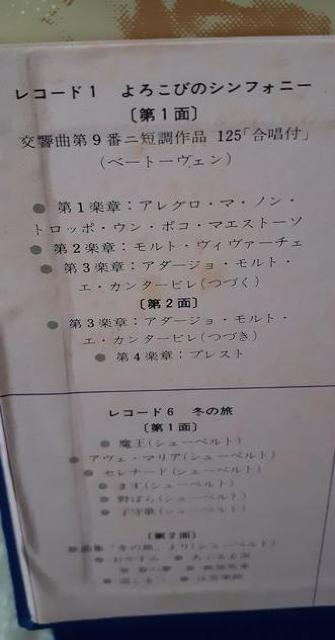 レコード1 よろこびのシンフォニー
〔第1面〕
交響曲第9番ニ短調作品 125「合唱付」
(ベートーヴェン)
● 第1楽章：アレグロ・マ・ノン・
トロッポ・ウン・ポコ・マエストーソ
● 第2楽章：モルト・ヴィヴァーチェ
● 第3楽章：アダージョ・モルト・
エ・カンタービレ(つづく)
〔第2面〕
● 第3楽章：アダージョ・モルト・
エ・カンタービレ(つづき)
● 第4楽章：プレスト
レコード6 冬の旅
〔第1面〕
● 魔王(シューベルト)
● アヴェ・マリア(シューベルト)
● セレナード(シューベルト)
● ます(シューベルト)
● 野ばら(シューベルト)
● 子守歌(シューベルト)
〔第2面〕
歌曲集「冬の旅」より(シューベルト)
● おやすみ